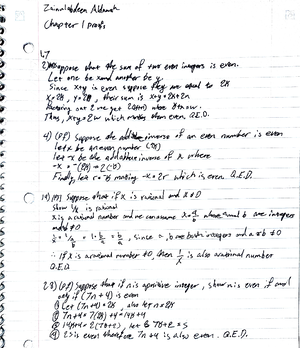 Zainulabdeen
Chapter 1 Proofs
1.7
2) Suppose that the sum of two even integers is even.
Let one be x and another be y.
Since x+y is even suppose they are equal to 2k
x=2k, y=2n, their sum is x+y=2k+2n
factoring out 2 we get 2(k+n) where
Thus, x+y= which makes them even. Q.E.D.
4) (Pf) Suppose the additive inverse of an even number is even
let x be an even number (2k)
let -x be the additive inverse of x where
-x = -(2k) = 2(-k)
Finally, let r=-k making -x=2r which is even. Q.E.D.
Suppose that if x is rational and x≠0
show 1/x is rational
x is a rational number and we can assume x=a/b where a and b are integers
and b≠0
1/x = = 1·b/a = b/a, since a, b are both integers and a≠0
∴ If x is a rational number ≠0, then 1/x is also a rational number
Q.E.D.
28) (Pf) Suppose that if n is a positive integer, show n is even if and
only if (7n+4) is even
Let (7n+4)=2k, also let n=2k
7n+4=7(2k)+4=14k+4
14k+4=2(7k+2), let 7k+2=s
2s is even therefore 7n+4 is also even. Q.E.D.